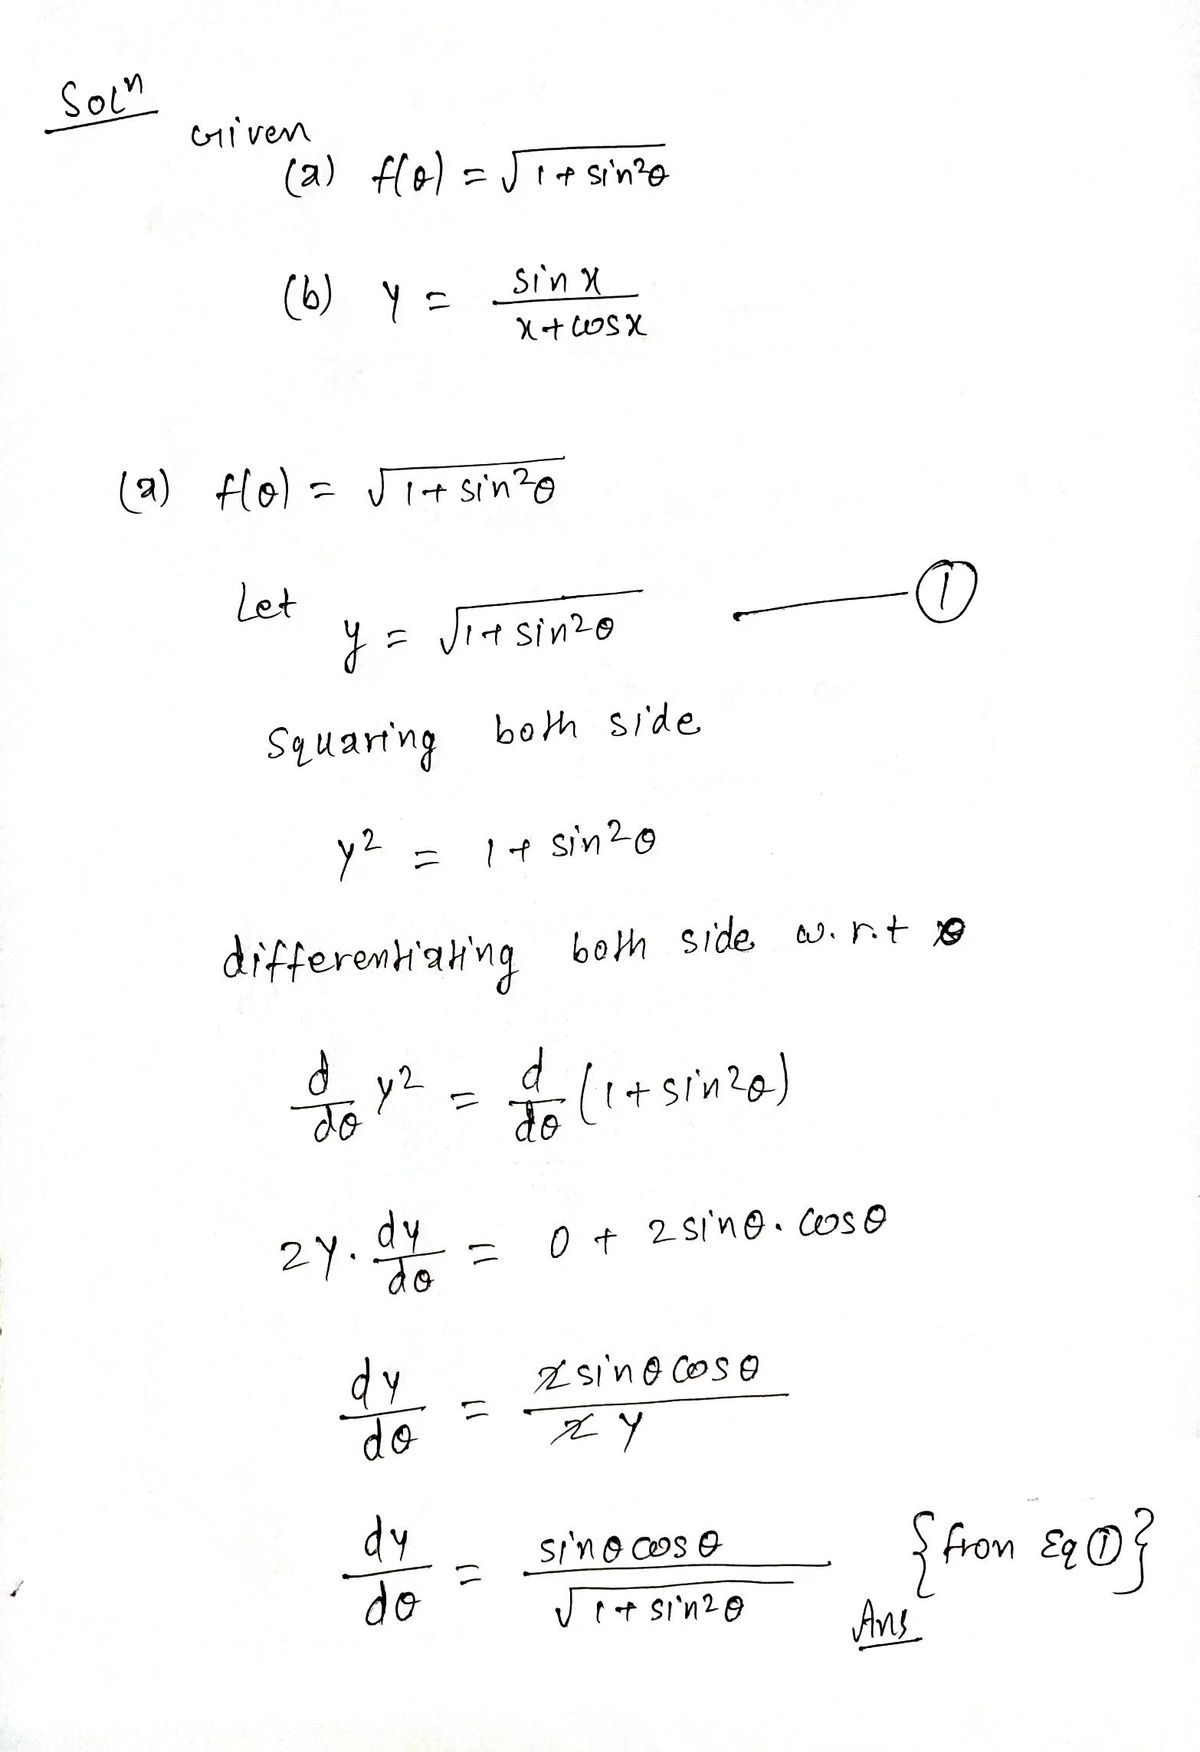 Solⁿ
Given
(a) f(θ) = √1+sin²θ
(b) y = sin x / x+cos x
(a) f(θ) = √1+sin²θ
Let y = √1+sin²θ ——— ①
Squaring both side
y² = 1+sin²θ
differentiating both side w.r.t θ
d/dθ y² = d/dθ (1+sin²θ)
2y. dy/dθ = 0 + 2 sinθ. cosθ
dy/dθ = 2 sinθ cosθ / 2 y
dy/dθ = sinθ cosθ / √1+sin²θ {fron Eq ①}
Ans